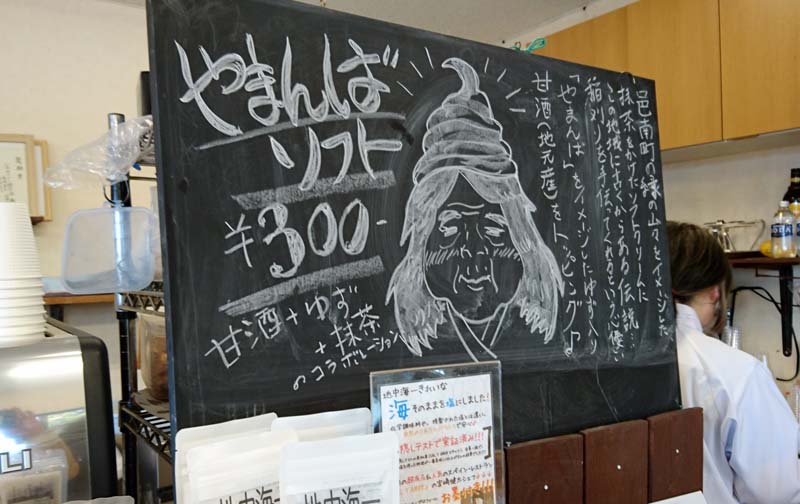 やまんば
ソフト
¥300-
甘酒+ゆず
+抹茶
のコラボレーション
邑南町の緑の山々をイメージした
抹茶をかけたソフトクリームに
この地域に古くからある伝説…
稲刈りを手伝ってくれるという心優しい
「やまんば」をイメージしたゆず入り
甘酒(地元産)をトッピング♪
地中海一きれいな
海そのままを塩にしました!
実証済み!!!
地中海一
地中海一